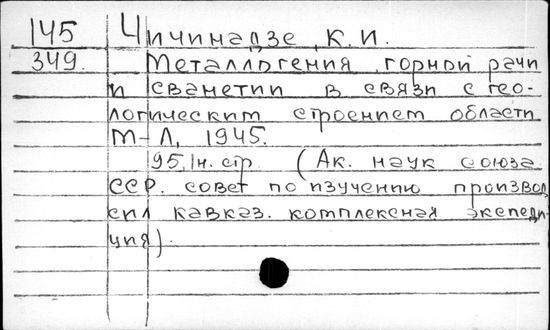 145 Чичинадзе, К. И.
349. Металлогения горной рачи
и сванетии в связи с гео-
логическим строением области
М-Л, 1945.
95,1н. стр. (Ак. наук союза
ССР. совет по изучению производ
сил кавказ. комплексная экспеди-
ция).